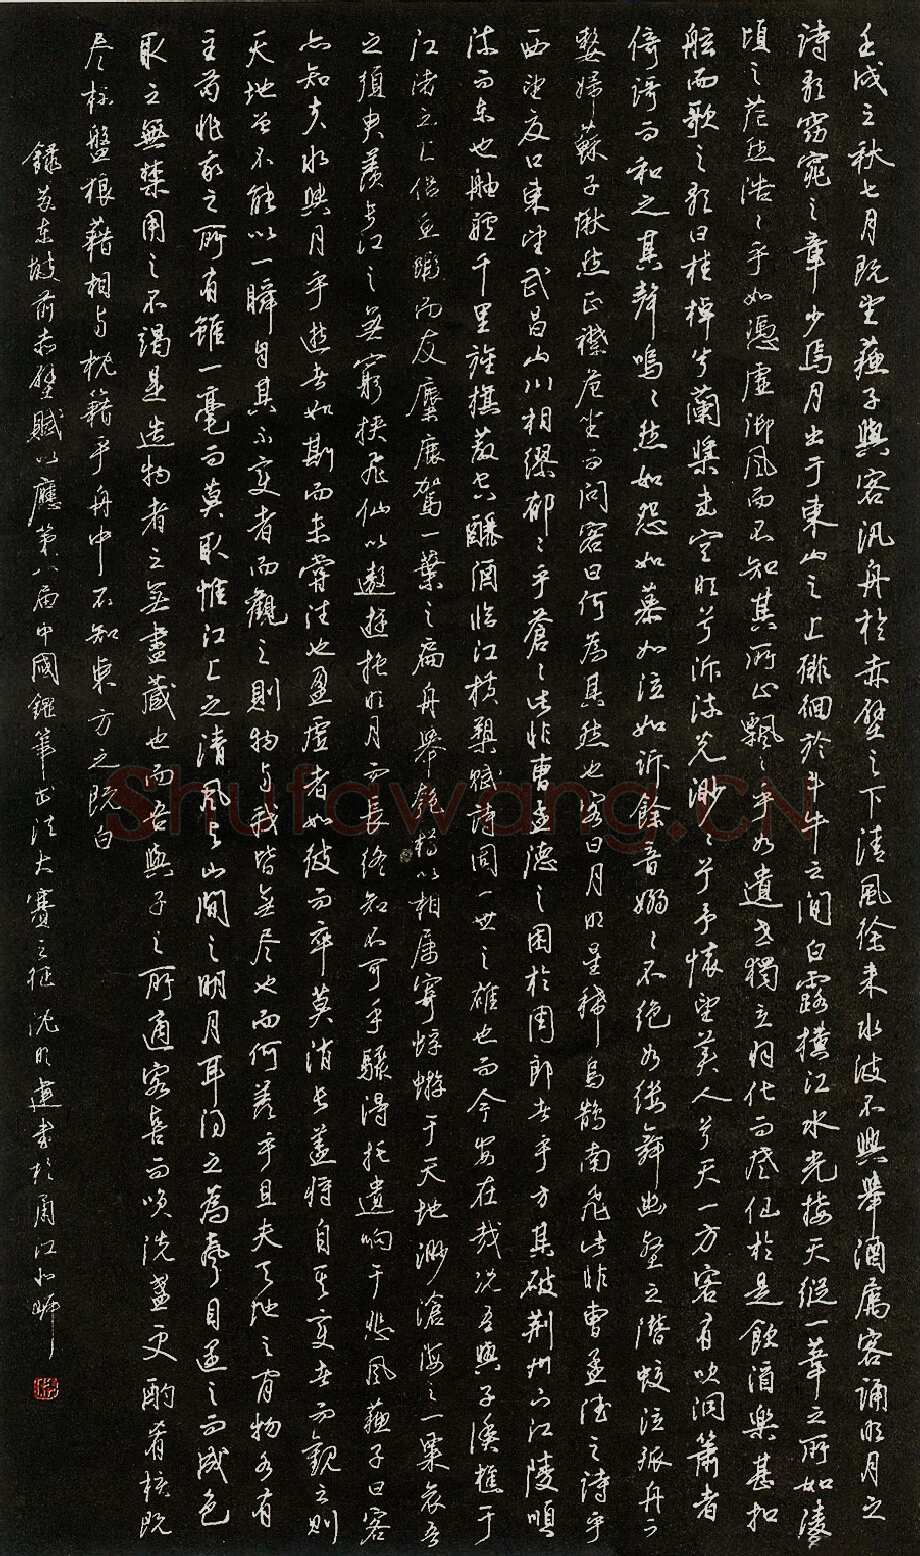 壬戌之秋七月既望蘇子與客汎舟於赤壁之下清風徐來水波不興舉酒屬客誦明月之
詩歌窈窕之章少焉月出于東山之上徘徊於斗牛之間白露橫江水光接天縱一葦之所如淩
頃之茫然浩〻乎如憑虛御風而不知其所止飄〻乎如遺世獨立羽化而登仙於是飲酒樂甚扣
舷而歌之歌曰桂棹兮蘭槳擊空明兮泝流光渺〻兮予懷望美人兮天一方客有吹洞簫者
倚謌而和之其聲嗚〻然如怨如慕如泣如訴餘音嫋〻不絕如縷舞幽壑之潛蛟泣孤舟之
嫠婦蘇子愀然正襟危坐而問客曰何為其然也客曰月明星稀烏鵲南飛此非曹孟德之詩乎
西望夏口東望武昌山川相繆郁〻乎蒼〻此非曹孟德之困於周郎者乎方其破荊州下江陵順
流而東也舳艫千里旌旗蔽空釃酒臨江橫槊賦詩固一世之雄也而今安在哉況吾與子漁樵于
江渚之上侶魚蝦而友麋鹿駕一葉之扁舟舉匏樽以相属寄蜉蝣于天地渺滄海之一粟哀吾
之須臾羨長江之無窮挾飛仙以遨遊抱明月而長終知不可乎驟得托遺响于悲風蘇子曰客
亦知夫水與月乎逝者如斯而未嘗往也盈虛者如彼而卒莫消長蓋將自其變者而觀之則
天地曾不能以一瞬自其不变者而觀之則物与我皆無尽也而何羨乎且夫天地之间物各有
主苟非吾之所有雖一毫而莫取惟江上之清風与山間之明月耳得之為聲目遇之而成色
取之無禁用之不竭是造物者之無盡藏也而吾與子之所適客喜而笑洗盞更酌肴核既
尽杯盤狼藉相与枕籍乎舟中不知東方之既白
錄蘇東坡前赤壁賦以應第八届中國鋼筆书法大賽之征 沈明建书於